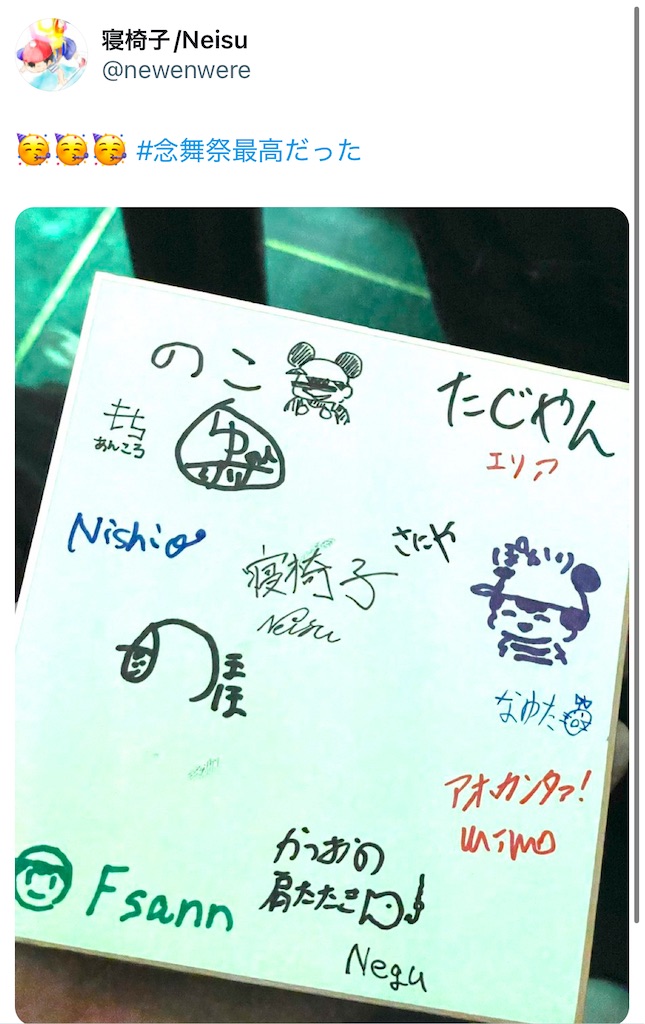 寝椅子/Neisu
@newenwere
#念舞祭最高だった
のこ
たじやん
エリア
もち
あんころ
ゆ
Nishi
さにや
寝椅子
Neisu
ぱかり
のほほ
なゆた
アオカンタァ!
mimo
かつおの
肩たたき
Fsann
Negu